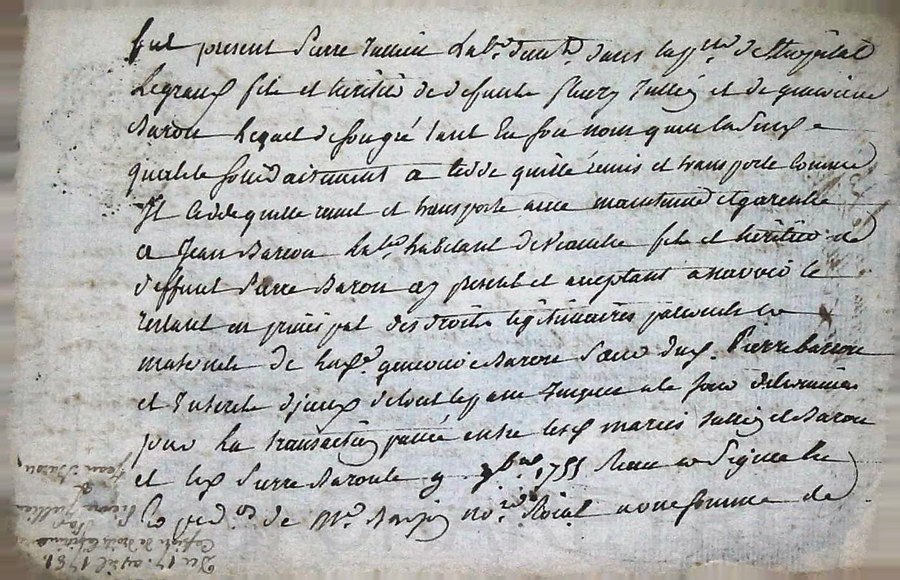 fut present Pierre Jullien lab.r dem.t dans la p.sse de l'hopital
Legrand fils et heritier de defunte fleury Jullien et de genevieve
Baron lequel de son gré tant en son nom que en lad. sus.
qualité solidairement a cedde quitté remis et transporte comme
Il cedde quitte remet et transporte avec maintenue et garentie
a Jean Barrou lab.r habitant de fils et heritier de
deffunt Pierre Baron ag present et acceptant a scavoir le
restant en principal des droits legitimaires paternels et
maternels de lad. genevieve Baron sœur dud. Pierre barrou
et Interets d'yceux de tout le passé jusques a ce jour
pour la transaction passée entre lesd. mariés Jullien et Baron
et led. Pierre Baron le 9bre 1755 Receu et Signee
de M.e no.re Roial une somme de
Du 17. avril 1781.
Cession de droits
Par
Pierre Jullien
à
Jean Baron